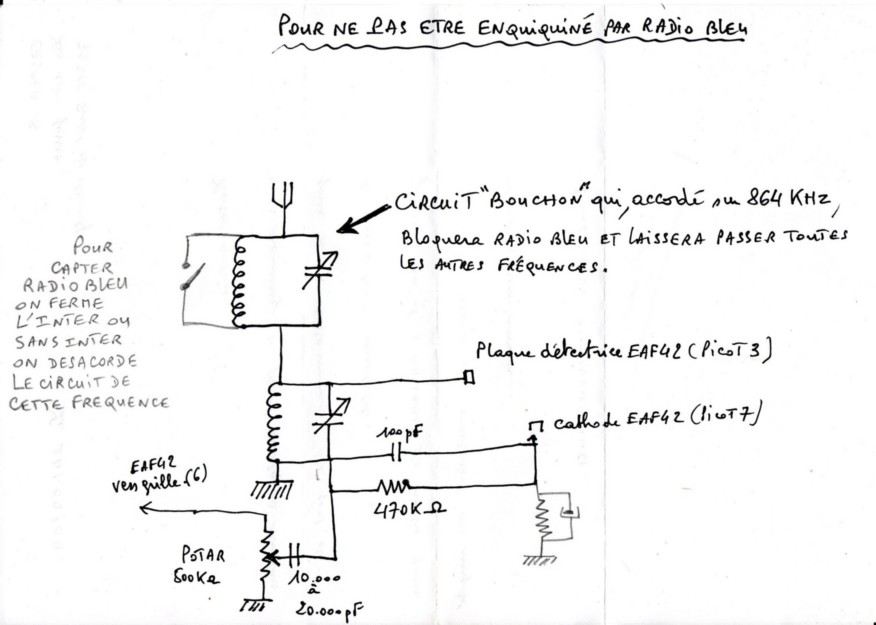 POUR NE PAS ETRE ENQUIQUINÉ PAR RADIO BLEU
CIRCUIT "BOUCHON" qui, accordé sur 864 KHz,
BloquERA RADIO BLEU ET LAISSERA PASSER TOUTES
LES AUTRES FRÉQUENCES.
POUR
CAPTER
RADIO BLEU
ON FERME
L'INTER OU
SANS INTER
ON DESACORDE
LE CIRCUIT DE
CETTE FREQUENCE
Plaque détectrice EAF42 (PicoT 3)
cathode EAF42 (PicoT 7)
100pF
EAF42
vers grille (6)
470K Ω
POTAR
500KΩ
10.000
à
20.000pF